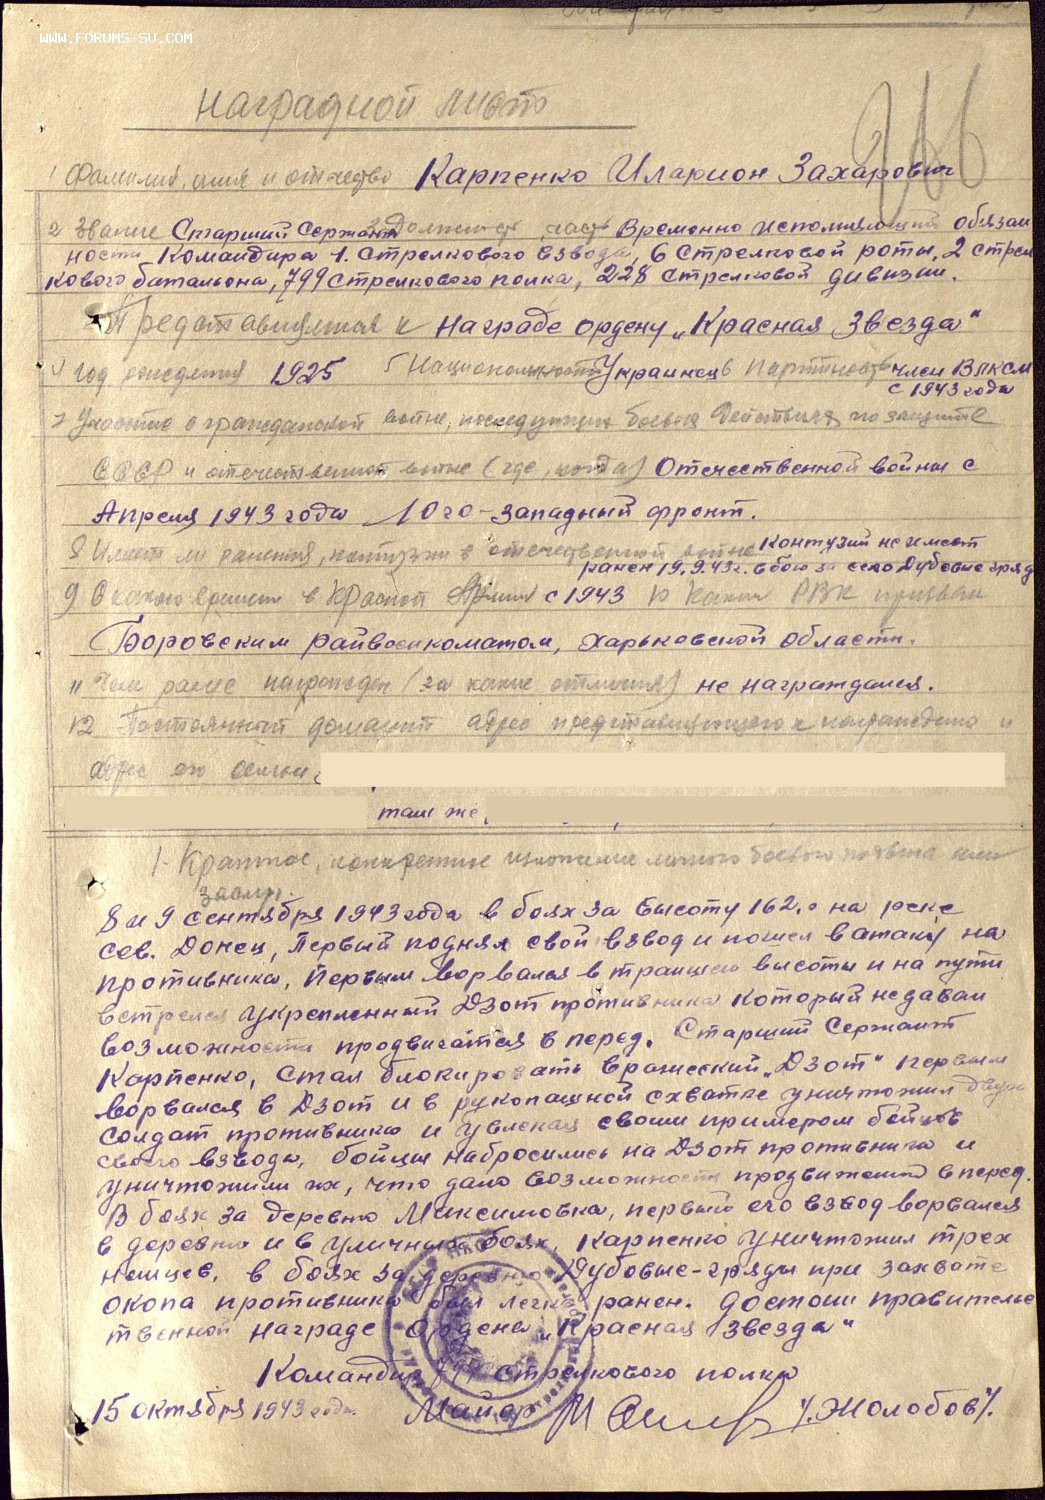 WWW.FORUMS-SU.COM
Наградной лист
1 Фамилия, имя и отчество Карпенко Иларион Захарович
2 Звание Старший Сержант 3 Должность, часть Временно исполняющий обязан
ности Командира 1. стрелкового взвода, 6 стрелковой роты, 2 стрел
кового батальона, 799 стрелкового полка, 228 стрелковой дивизии.
Представляется к награде ордену „Красная Звезда"
4 Год рождения 1925 5 Национальность Украинец 6 Партийность член ВЛКСМ
с 1943 года
7 Участие в гражданской войне, последующих боевых действиях по защите
СССР и отечественной войне (где, когда) Отечественной войны с
Апреля 1943 года Юго-Западный фронт.
8 Имеет ли ранения, контузии в отечественной войне Контузий не имеет
ранен 19.9.43г. в бою за село Дубовые гряд
9 С какого времени в Красной Армии с 1943 10 Каким РВК призван
Боровским райвоенкоматом, Харьковской области.
11 Чем ранее награжден (за какие отличия) не награждался.
12 Постоянный домашний адрес представляемого к награждению и
адрес его семьи
там же,
1. Краткое, конкретное изложение личного боевого подвига или
заслуг.
8 и 9 сентября 1943 года в боях за высоту 162.0 на реке
сев. Донец, Первый поднял свой взвод и пошел в атаку на
противника, Первым ворвался в траншею высоты и на пути
встретил укрепленный Дзот противника который не давал
возможности продвигатся в перед. Старший Сержант
Карпенко, стал блокировать вражеский „Дзот" первым
ворвался в Дзот и в рукопашной схватке уничтожил двух
солдат противника и увлекая своим примером бойцов
своего взвода, бойцы набросились на Дзот противника и
уничтожили их, что дало возможность продвижений вперед.
В боях за деревню Максимовка, первый его взвод ворвался
в деревню и в уличных боях, Карпенко уничтожил трех
немцев, в боях за деревню Дубовые-гряды при захвате
окопа противника был легко ранен. Достоин правительс
твенной награде ордена „Красная Звезда"
Командир 799 стрелкового полка
15 октября 1943 года. Майор /Жолобов/.